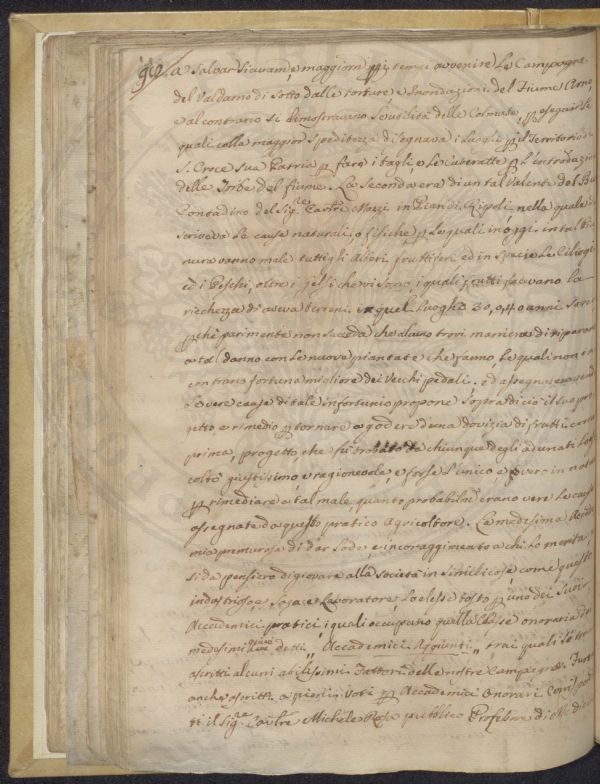 a Salvar sicuram.e maggiorm. pi tempi avvenire le Campagne
del Valdarno di Sotto dalle torture e inondazioni del Fiume
e al contrario si dimostravano l'utilità delle Colmate, p eseguir le
quali colla maggior speditezza disegnava i luoghi p il Territorio di
S. Croce sua Patria p fare i tagli, e le Cateratte p l'introduzione
delle Torbe del fiume. La seconda era di un tal Valente del
Contadino del Sig.re Cav.re Mozzi in Pian di Ripoli, nella quale de
scriveva le cause naturali, o fisiche p le quali in oggi in tal
vanno male tutti gli Alberi fruttiferi ed in specie le Ciliegi
ed i Peschi, oltre i Gelsi che vi sono, i quali frutti facevano la
ricchezza di aveva terreni in quel luogho 30, o 40 anni
p che parimente non succeda che alcuno trovi maniera di riparare
a tal danno con le nuove piantate che fanno, le quali non
contrano fortuna migliore dei Vecchi pedali. ed assegna
le vere cause di tale infortunio propone sopra di ciò il suo pro
getto e rimedio p tornare a godere d'una dovizia di frutti come
prima, progetto che fu trovato da chiunque degli adunati
giustissimo, e ragionevole, e forse l'unico,
p rimediare a tal male, quanto probabilm. erano vere le cause
assegnate da questo pratico Agricoltore. La medesima Accade
mia premurosa di dar lode, e incoraggimento a chi lo merita, e
si dà pensiero di giovare alla società in simili cose, come questo
industrioso, e saggio Lavoratore, lo elesse tosto p uno dei suoi
Accademici pratici, i quali occupano quella Classe onoraria di
medesimi detti "Accademici Aggiunti" trai quali
ascritti alcuni abilissimi Fattori delle nostre Campagne.
anche ascritti a pieni Voti p Accademici Onorari Corrispond
ti il Sig.re Dott.re Michele Rosa pubblico Professore di